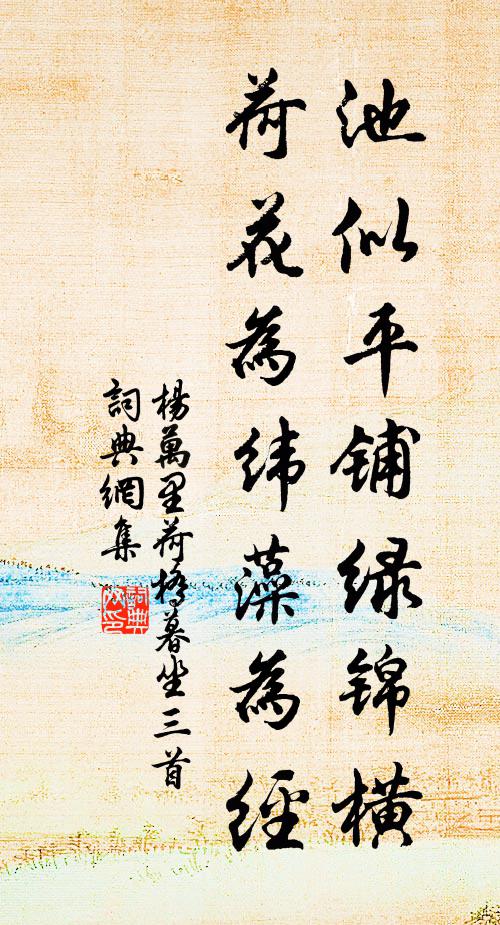 池似平铺绿锦横
荷花為纬藻為經
楊萬里荷橋暮坐三首
詞典網集